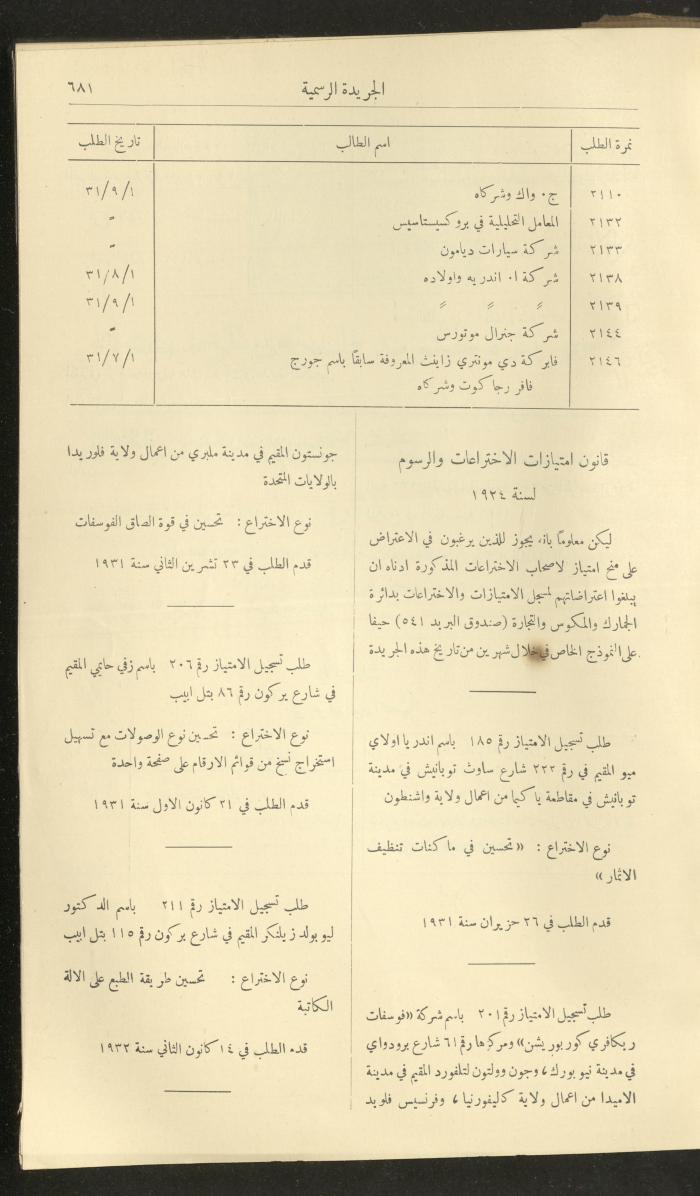 ٦٨١ الجريدة الرسمية
نمرة الطلب اسم الطالب تاريخ الطلب
٢١١٠ ج. واك وشركاه ٣١/٩/١
٢١٣٢ المعامل التحليلية في بروكسيستاسيس "
٢١٣٣ شركة سيارات ديامون "
٢١٣٨ شركة ا. اندريه واولاده ٣١/٨/١
٢١٣٩ " " " ٣١/٩/١
٢١٤٤ شركة جنرال موتورس "
٢١٤٦ فابركة دي مونتري زاينث المعروفة سابقًا باسم جورج ٣١/٧/١
فافر رجاكوت وشركاه
قانون امتيازات الاختراعات والرسوم
لسنة ١٩٢٤
ليكن معلومًا بانه يجوز للذين يرغبون في الاعتراض
على منح امتياز لاصحاب الاختراعات المذكورة ادناه ان
يبلغوا اعتراضاتهم لمسجل الامتيازات والاختراعات بدائرة
الجمارك والمكوس والتجارة (صندوق البريد ٥٤١) حيفا
على النموذج الخاص في خلال شهرين من تاريخ هذه الجريدة
طلب تسجيل الامتياز رقم ١٨٥ باسم اندريا اولاي
ميو المقيم في رقم ٢٢٢ شارع ساوث توبانيش في مدينة
توبانيش في مقاطعة ياكيما من اعمال ولاية واشنطون
نوع الاختراع : «تحسين في ماكنات تنظيف
الاثمار»
قدم الطلب في ٢٦ حزيران سنة ١٩٣١
طلب تسجيل الامتياز رقم ٢٠١ باسم شركة «فوسفات
ريكافري كوربوريشن» ومركزها رقم ٦١ شارع برودواي
في مدينة نيويورك، وجون وولتون لتلفورد المقيم في مدينة
الاميدا من اعمال ولاية كليفورنيا، وفرنسيس فلويد
جونستون المقيم في مدينة ملبري من اعمال ولاية فلوريدا
بالولايات المتحدة
نوع الاختراع : تحسين في قوة الصاق الفوسفات
قدم الطلب في ٢٣ تشرين الثاني سنة ١٩٣١
طلب تسجيل الامتياز رقم ٢٠٦ باسم زفي حايمي المقيم
في شارع يركون رقم ٨٦ بتل ابيب
نوع الاختراع : تحسين نوع الوصولات مع تسهيل
استخراج نسخ من قوائم الارقام على صفحة واحدة
قدم الطلب في ٢١ كانون الاول سنة ١٩٣١
طلب تسجيل الامتياز رقم ٢١١ باسم الدكتور
ليوبولد زيلنكر المقيم في شارع يركون رقم ١١٥ بتل ابيب
نوع الاختراع : تحسين طريقة الطبع على الالة
الكاتبة
قدم الطلب في ١٤ كانون الثاني سنة ١٩٣٢